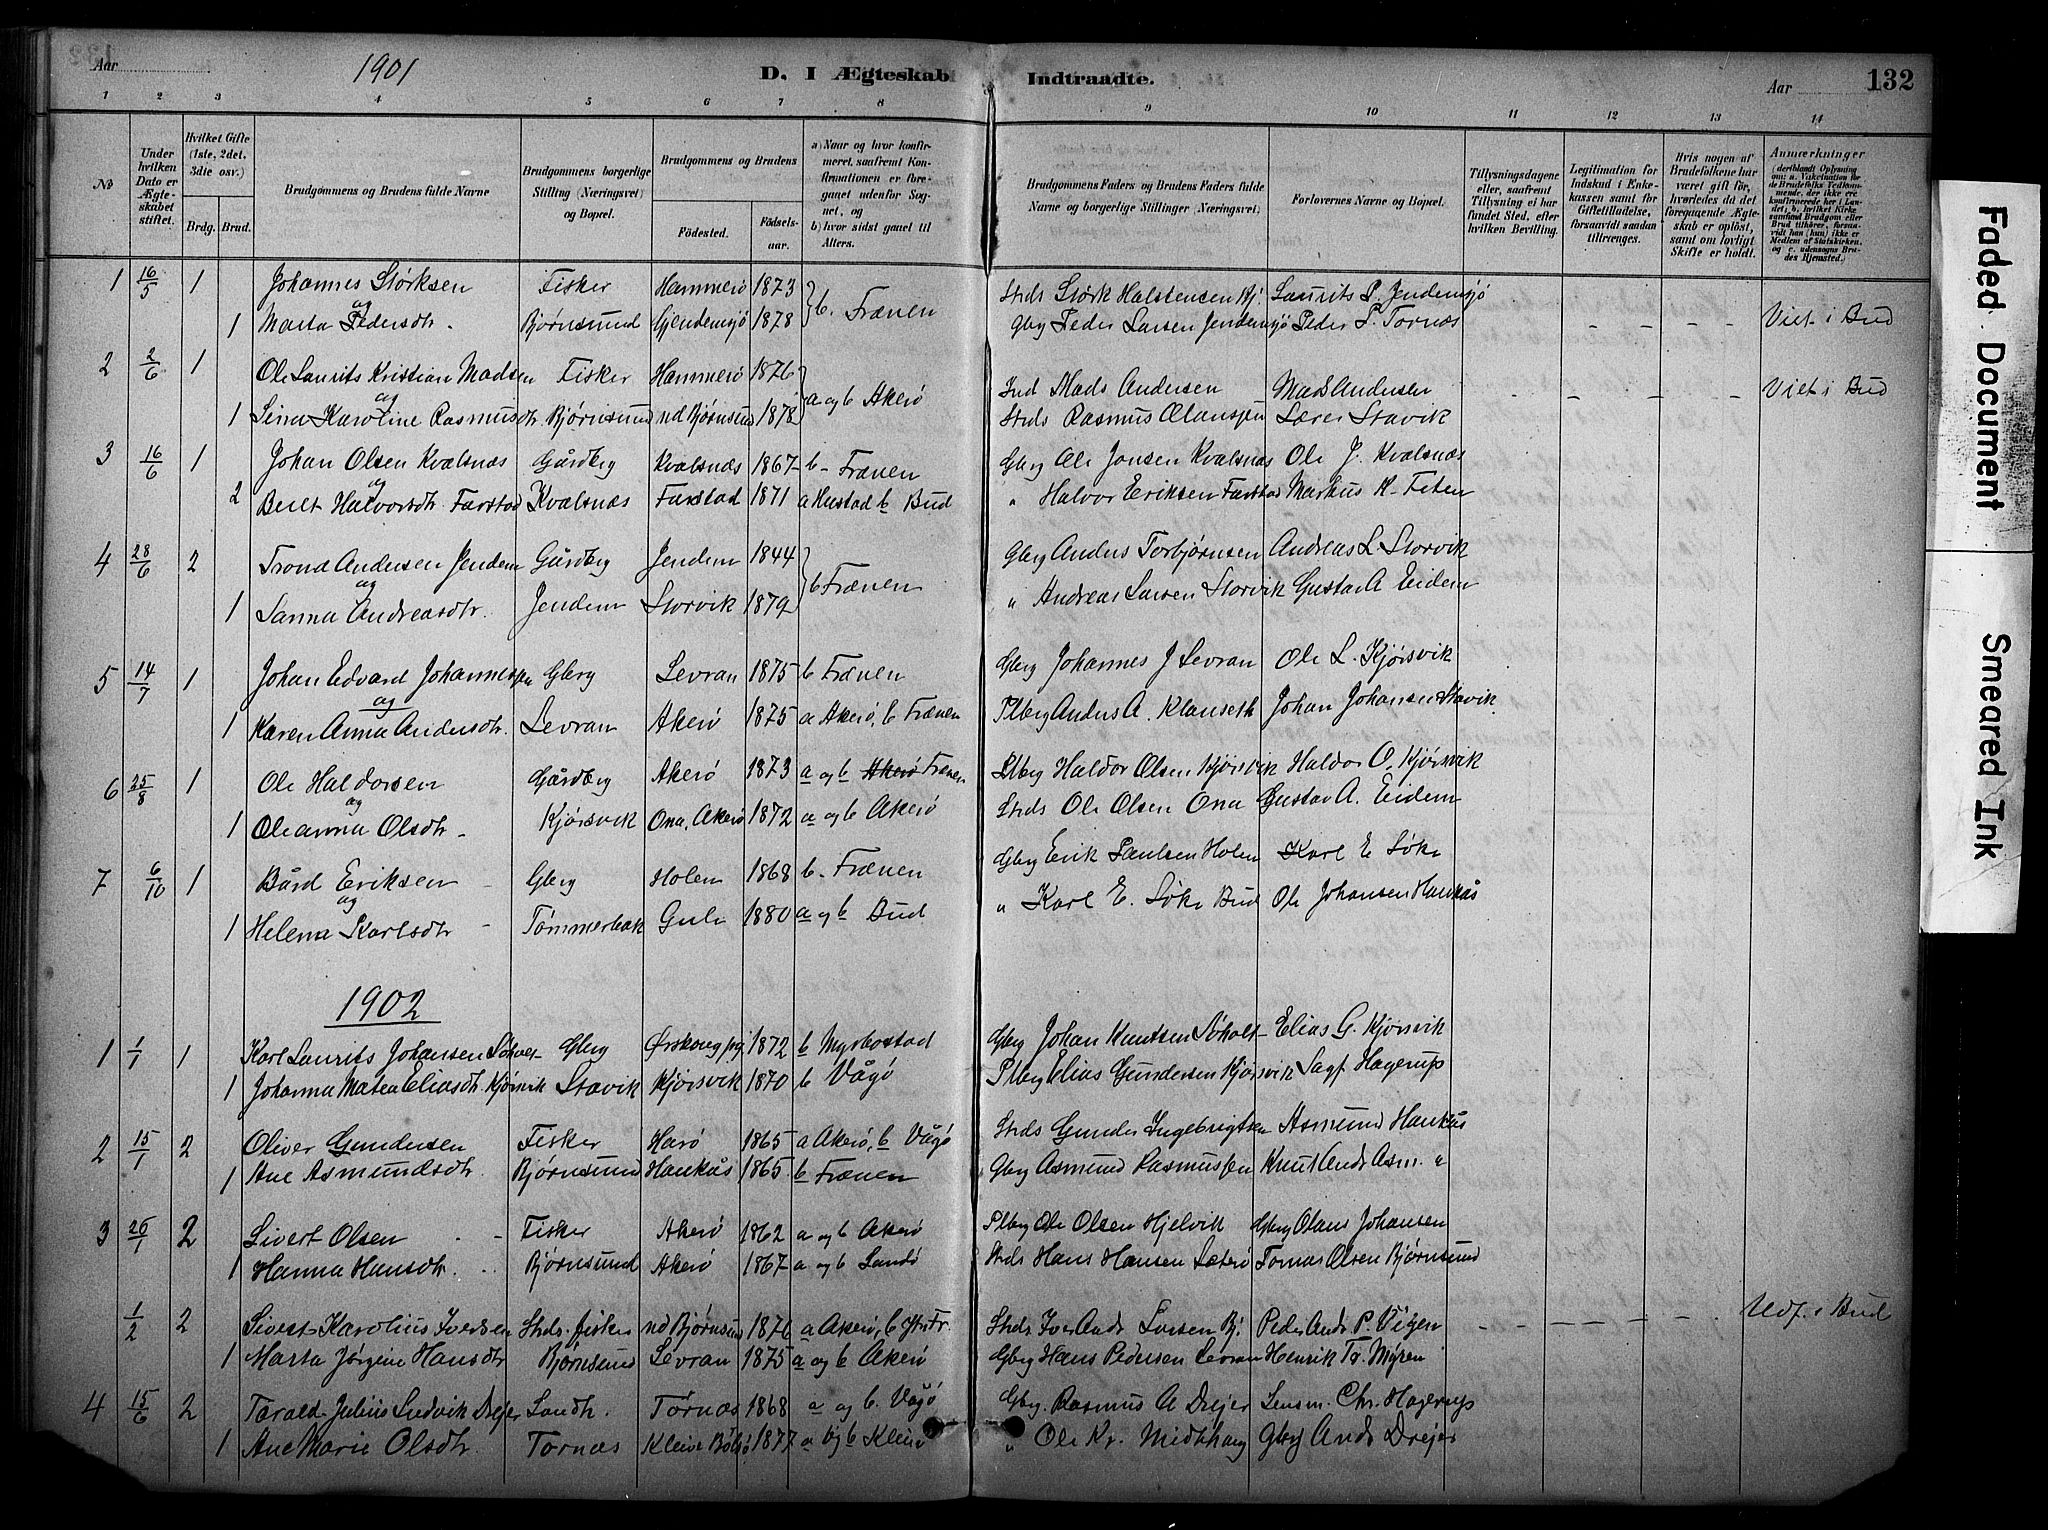 Aar 1901 D. I Ægteskab Indtraadte. Aar 132
1 2 3 4 5 6 7 8 9 10 11 12 13 14
No
Under hvilken Dato er Ægteskabet stiftet.
Hvilket Gifte (1ste, 2det, 3die osv.)
Brdg. Brud.
Brudgommens og Brudens fulde Navne
Brudgommens borgerlige Stilling (Næringsvei) og Bopæl.
Brudgommens og Brudens
Fødested. Fødselsaar.
a) Naar og hvor konfirmeret, saafremt Konfirmationen er foregaaet udenfor Sognet, og
b) hvor sidst gaaet til Alters.
Brudgommens Faders og Brudens Faders fulde Navne og borgerlige Stillinger (Næringsvei)
Forlovernes Navne og Bopæl.
Tillysningsdagene eller, saafremt Tillysning ei har fundet Sted, efter hvilken Bevilling.
Legitimation for Indskud i Enkekassen samt for Giftetilladelse, forsaavidt saadan tiltrænges.
Hvis nogen af Brudefolkene har været gift før, hvorledes da det foregaaende Ægteskab er opløst, samt om lovligt Skifte er holdt.
Anmærkninger
1 16/5 1 Johannes Størksen Fisker Hammerö 1873 b. Frænen Strds Størk Halstensen Bj Laurits P. Jendemsjö
og
1 Marta Pedersdtr. Bjørnsund Gjendemsjö 1878 Gbrg Peder Larsen Jendemsjö Peder P. Tornæs Viet i Bud
2 2/6 1 Ole Laurits Kristian Madsen Fisker Hammerö 1876 a og b Akerö Ind Mads Andersen Mads Andersen Viet i Bud
og
1 Sina Karoline Rasmusdtr. Bjørnsund nd Bjørnsund 1878 Strds Rasmus Olaussen Lærer Stavik
3 16/6 1 Johan Olsen Kvalsnæs Gårdbg Kvalsnæs 1867 b- Frænen Gbrg Ole Jonsen Kvalsnæs Ole J. Kvalsnæs
og
2 Berit Halvorsdtr. Farstad Kvalsnæs Farstad 1871 a Hustad b Bud " Halvor Eriksen Farstad Markus K-Teten
4 28/6 2 Trond Andersen Jendem Gårdbg Jendem 1844 b Frænen Gbrg Anders Torbjørnsen Andreas L Storvik
og
1 Sanna Andreasdtr. Jendem Storvik 1879 " Andreas Larsen Storvik Gustav A Eidem
5 14/7 1 Johan Edvard Johannessen Gbrg Levran 1875 b Frænen Gbrg Johannes J Levran Ole L. Kjörsvik
og
1 Karen Anna Andersdtr. Levran Akerö 1875 a Akerö, b Frænen Plbrg Anders A. Klauseth Johan Johansen Stavik
6 25/8 1 Ole Haldorsen Gårdbg Akerö 1873 a og b Akerö Frænen Plbrg Haldor Olsen Kjørsvik Haldor O. Kjørsvik
og
1 Oleanna Olsdtr - Kjørsvik Ona, Akerö 1872 a og b Akerö Strds Ole Olsen Ona Gustav A. Eidem
7 6/10 1 Bård Eriksen - Gbrg Holen 1868 b. Frænen Gbrg Erik Paulsen Holen Karl E Söke
og
1 Helena Karlsdtr - Tømmerbak Gule 1880 a og b Bud " Karl E. Söke Bud Ole Johansen Haukås
1902
1 1/1 1 Karl Laurits Johansen Gbrg Ørskoug pg 1872 b Myrbostad Gbrg Johan Knutsen Søholt Elias G. Kjørsvik
1 Johanna Matea Eliasdtr. Kjørsvik Stavik Kjørsvik 1870 b Vågö Plbrg Elias Gundersen Kjørsvik Sagf Hagerup
2 15/1 2 Oliver Gundersen Fisker Harö 1865 a Akerö, b Vågö Strds Gunder Ingebrigtsen Asmund Haukås
1 Ane Asmundsdtr. Bjørnsund Haukås 1865 b Frænen Gbrg Asmund Rasmussen Knut Andr Asm. "
3 26/1 2 Sivert Olsen - Fisker Akerö 1862 a og b Akerö Plbrg Ole Olsen Hjelvik Gbrg Olaus Johansen
1 Hanna Hansdtr. Bjørnsund Akerö 1867 a og b Sandö Strds Hans Hansen Sæterö Tomas Olsen Bjørnsund
1/2 2 Sivert Karolius Iversen Strds. fisker nd Bjørnsund 1876 a Akerö, b Strds Iver Andr Larsen Bj. Peder Andr P. Vigen Udf. i Bud
1 Marta Jørgine Hansdtr Bjørnsund Levran 1875 a og b Akerö Gbrg Hans Pedersen Levran Henrik Tr. Myren
4 15/6 2 Tarald Julius Ludvik Drejer Landh. Tornæs 1868 a og b. Vågö Gbrg. Rasmus A Drejer Lensm. Chr. Hagerup
1 Ane Marie Olsdtr. Tornæs Kleive Bolsö 1877 a og b Kleive " Ole Kr. Midthaug Gbrg Andr Drejer
Faded Document Smeared Ink